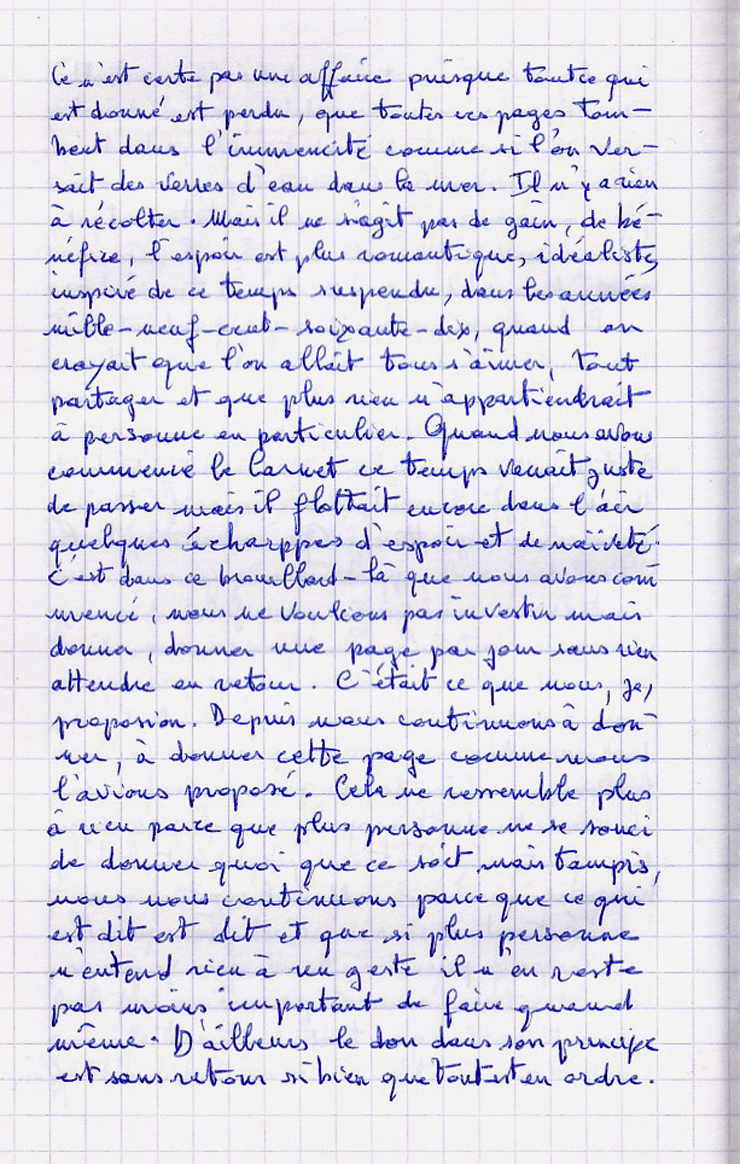 Ce n'est certe pas une affaire puisque tout ce qui
est donné est perdu, que toutes ces pages tom-
bent dans l'immencité comme si l'on ver-
sait des verres d'eau dans la mer. Il n'y a rien
à récolter. Mais il ne s'agit pas de gain, de bé-
néfice, l'espoir est plus romantique, idéaliste,
inspiré de ce temps suspendu, dans les années
mille-neuf-cent-soixante-dix, quand on
croyait que l'on allait tous s'aimer, tout
partager et que plus rien n'appartiendrait
à personne en particulier. Quand nous avons
commencé le Carnet ce temps venait juste
de passer mais il flottait encore dans l'air
quelques écharppes d'espoir et de naïveté.
C'est dans ce brouillard-là que nous avons com
mencé, nous ne voulions pas investir mais
donner, donner une page par jour sans rien
attendre en retour. C'était ce que nous, je,
proposion. Depuis nous continuons à don-
ner, à donner cette page comme nous
l'avions proposé. Cela ne ressemble plus
à rien parce que plus personne ne se souci
de donner quoi que ce soit mais tampis,
nous nous continuons parce que ce qui
est dit est dit et que si plus personne
n'entend rien à un geste il n'en reste
pas moins important de faire quand
même. D'ailleurs le don dans son principe
est sans retour si bien que tout est en ordre.